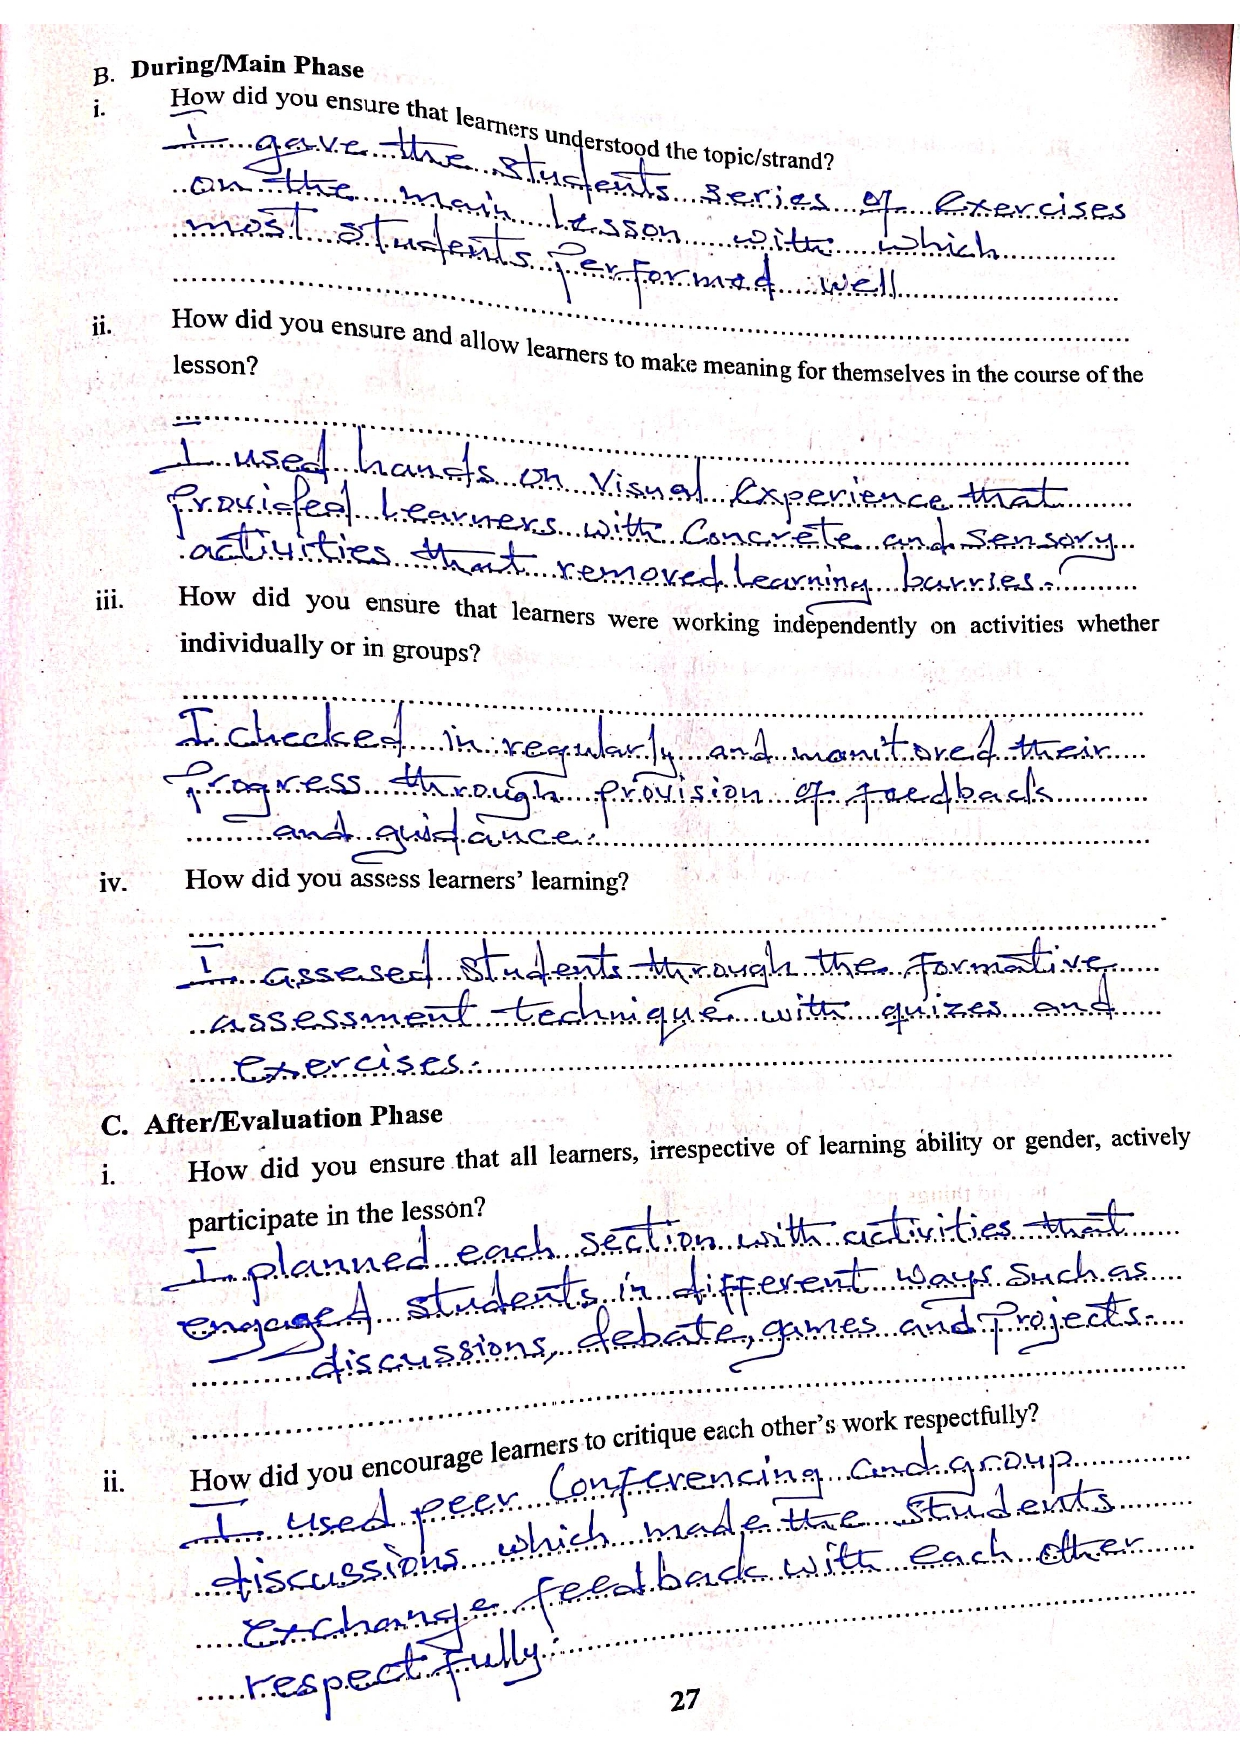 B. During/Main Phase
i. How did you ensure that learners understood the topic/strand?
I gave the students series of exercises
on the main lesson with which
most students performed well
ii. How did you ensure and allow learners to make meaning for themselves in the course of the
lesson?
I used hands on visual experience that
provided learners with concrete and sensory
activities that removed learning barries.
iii. How did you ensure that learners were working independently on activities whether
individually or in groups?
I checked in regularly and monitored their
progress through provision of feedback
and guidance.
iv. How did you assess learners' learning?
I assesed students through the formative
assessment technique with quizes and
exercises.
C. After/Evaluation Phase
i. How did you ensure that all learners, irrespective of learning ability or gender, actively
participate in the lesson?
I planned each section with activities that
engaged students in different ways such as
discussions, debate, games and projects.
ii. How did you encourage learners to critique each other's work respectfully?
I used peer conferencing and group
discussions which made the students
exchange feedback with each other
respectfully.
27